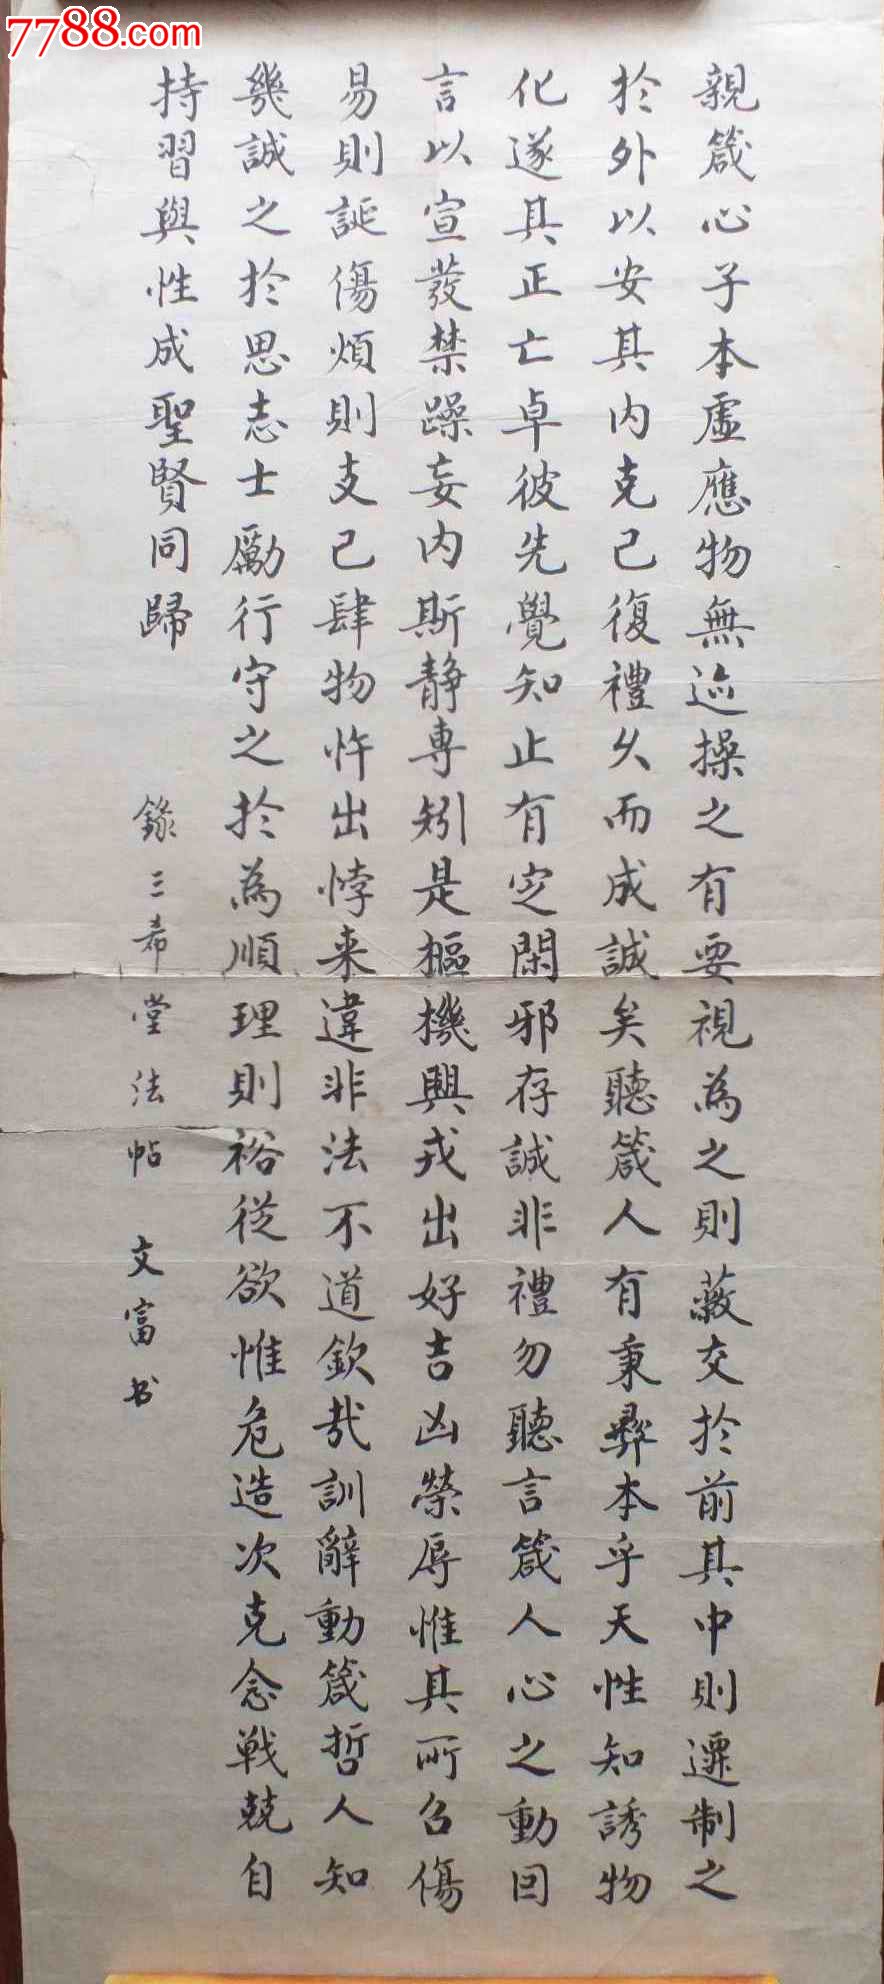 7788.com
中国收藏热线
親箴心子本虛應物無迹操之有要視為之則蔽交於前其中則遷制之
於外以安其内克己復禮久而成誠矣聽箴人有秉彝本乎天性知誘物
化遂其正亡卓彼先覺知止有定閑邪存誠非禮勿聽言箴人心之動因
言以宣發禁躁妄内斯静專矧是樞機興戎出好吉凶榮辱惟其所召傷
易則誕傷煩則支己肆物忤出悖来違非法不道欽哉訓辭動箴哲人知
幾誠之於思志士勵行守之於為順理則裕從欲惟危造次克念戰兢自
持習與性成聖賢同歸
錄三希堂法帖 文富书